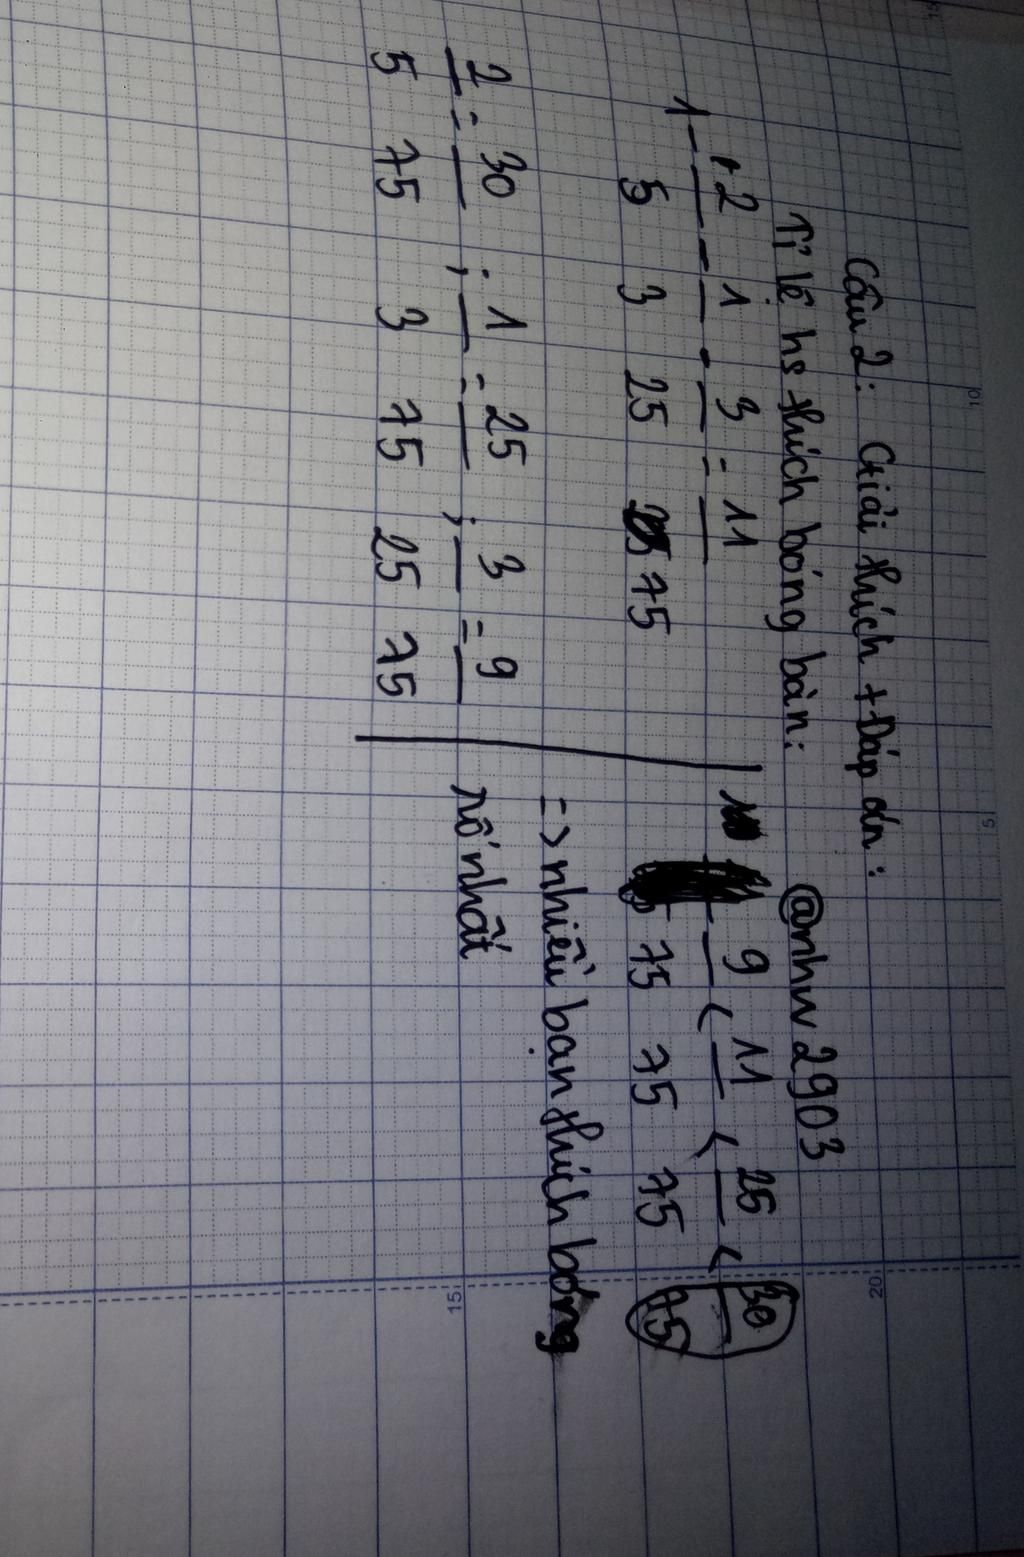 Câu 2: Giải thích + Đáp án:
@nhw2903
Tỉ lệ hs thích bóng bàn:
1 - 2/5 - 1/3 - 3/25 = 11/75
2/5 = 30/75 ; 1/3 = 25/75 ; 3/25 = 9/75
9/75 < 11/75 < 25/75 < 30/75
=> nhiều bạn thích bóng
rổ nhất